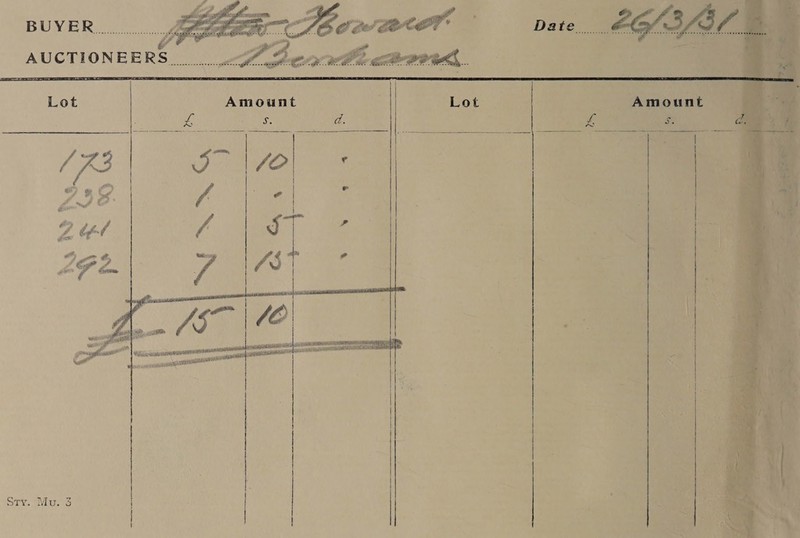 BUYER Howard. Date 26/3/31
AUCTIONEERS Bonhams
Lot Amount Lot Amount
£ s. d. £ s. d.
173 5 10 "
238. 1. " "
241 1. 5 "
292 7 15 "
£ 15 10
Sty. Mu. 3